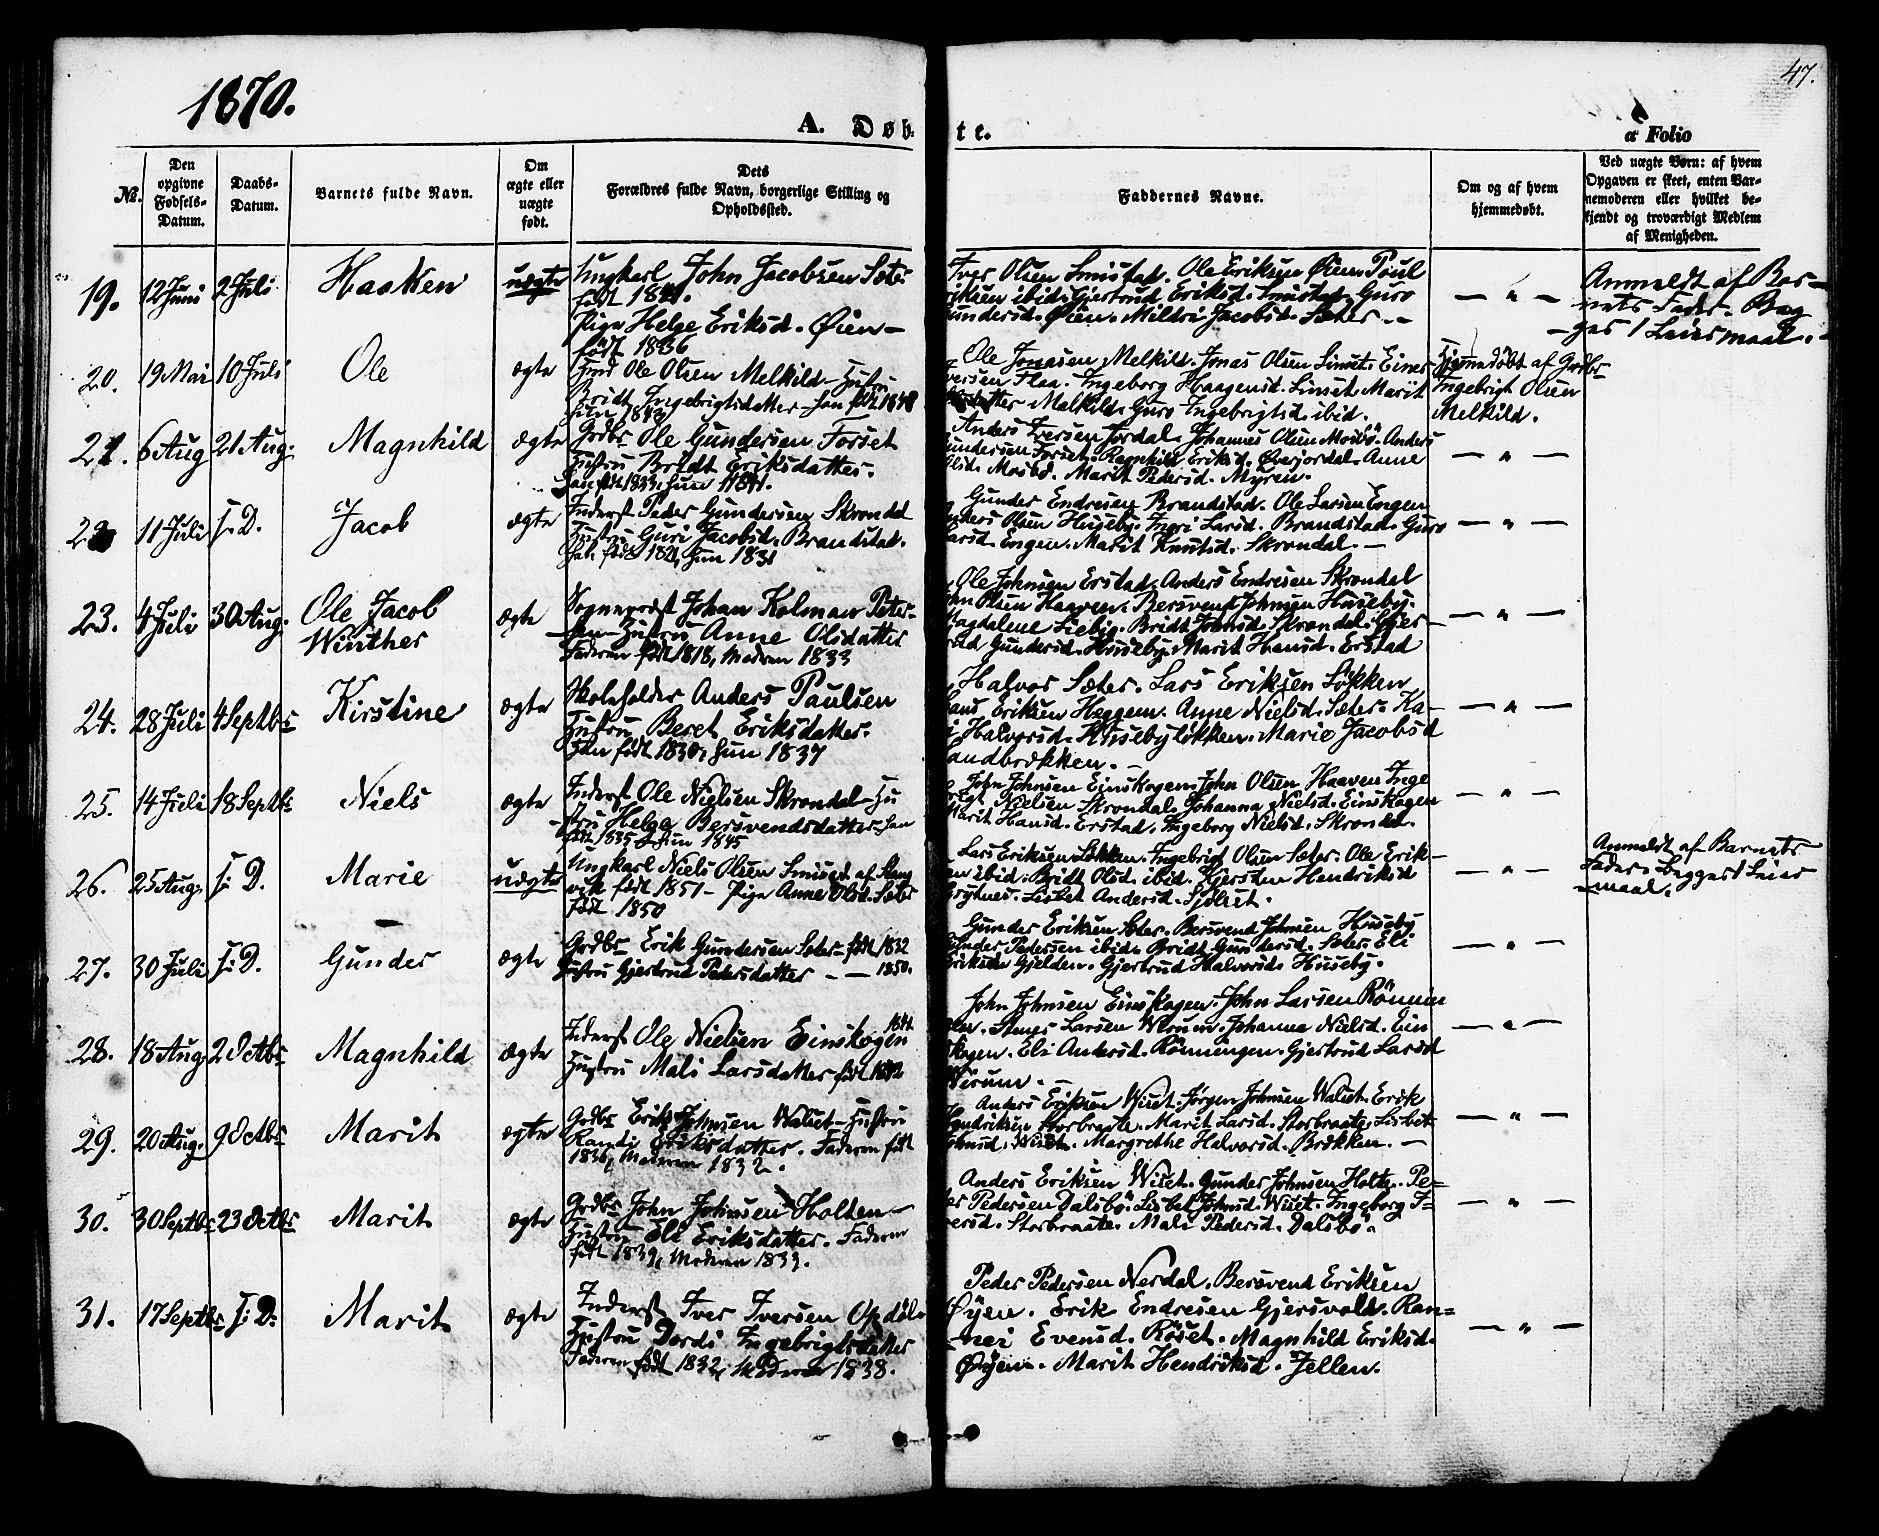 1870.
47.
A. Døbte.
a Folio
No.
Den opgivne Fødsels-Datum.
Daabs-Datum.
Barnets fulde Navn.
Om ægte eller uægte født.
Dets Forældres fulde Navn, borgerlige Stilling og Opholdssted.
Faddernes Navne.
Om og af hvem hjemmedøbt.
Ved uægte Børn: af hvem Opgaven er skeet, enten Barnemoderen eller hvilket bekjendt og troværdigt Medlem af Menigheden.
19. 12 Juni 2 Juli Haaken uægte
Ungkarl John Jacobsen Sæter
født 1841.
Pige Helge Eriksd. Øien
født 1836
Iver Olsen Smistad. Ole Eriksen Øien. Poul
Eriksen ibid. Gjertrud Eriksd. Smistad. Guro
Gundersd. Øien. Mildri Jacobsd. Sæter
— " —
Anmeldt af Bar-
nets Fader. Beg-
ges 1 Leiermaal.
20. 19 Mai 10 Juli Ole ægte
Gmd Ole Olsen Melkild - Hustru
Bridt Ingebrigtsdatter - han født 1848
hun 1843
Ole Jonasen Melkild. Jonas Olsen Linset. Einer
Iversen Flaa. Ingeborg Haagensd. Linset. Marit
Melkild. Guro Ingebrigtsd. ibid.
Hjemmedøbt af Grdbr
Ingebrigt Olsen
Melkild.
21. 6 Aug 21 Aug. Magnhild ægte
Grdbr Ole Gundersen Forset
Hustru Bridt Eriksdatter.
han født 1833, hun 1841.
Anders Iversen Jordal. Johannes Olsen Mosbø. Anders
Gundersen Forset. Ragnhild Eriksd. Øverjordal. Anne
Olsd. Mosbø. Marit Pedersd. Myren.
— " —
22. 11 Juli I: D. Jacob ægte
Inderst Peder Gundersen Skrondal
Hustru Guri Jacobsd. Brandstad.
han født 1821, hun 1831
Gunder Endresen Brandstad. Ole Larsen Engen
Anders Olsen Huseby. Ingri Larsd. Brandstad. Guro
Larsd. Engen. Marit Knutsd. Skrondal. —
— " —
23. 4 Juli 30 Aug. Ole Jacob
Winther ægte
Sognepræst Johan Kolman Peter-
sen - Hustru Anne Olsdatter
Faderen født 1818, Moderen 1833
Ole Johnsen Erstad. Anders Endresen Skrondal
John Olsen Haaven. Bersvend Johnsen Huseby.
Magdalene Liebig. Bridt Johnsd. Skrondal. Gjer-
trud Gundersd. Huseby. Marit Hansd. Erstad
— " —
24. 28 Juli 4 Septbr Kirstine ægte
Skoleholder Anders Paulsen
Hustru Beret Eriksdatter.
Han født 1830, hun 1837
Halvor Sæter. Lars Eriksen Løkken
Hans Eriksen Heggem. Anne Nielsd. Sæter. Ka-
ri Halvorsd. Husebyløkken. Marie Jacobsd
Sandbrækken. —
— " —
25. 14 Juli 18 Septbr Niels ægte
Inderst Ole Nielsen Skrondal - Hu
stru Helge Bersvendsdatter - han
født 1835 hun 1845
John Johnsen Einskogen. John Olsen Haaven. Inge
brigt Nielsen Skrondal. Johanna Nielsd. Einskogen
Marit Hansd. Erstad. Ingeborg Nielsd. Skrondal.
— " —
26. 25 Aug. I: D. Marie uægte
Ungkarl Niels Olsen
født 1851 - Pige Anne Olsd. Sæter
født 1850
Lars Eriksen Løkken. Ingebrigt Olsen Sæter. Ole Erik-
sen ibid. Bridt Olsd. ibid. Kjersten Hendriksd
Grytnes. Lisbet Andersd. Sjølset.
— " —
Anmeldt af Barnets
Fader - Begges 1 Leier
maal.
27. 30 Juli I: D. Gunder ægte
Grdbr Erik Gundersen Sæter - født 1832
Hustru Gjertrud Pedersdatter — — 1850.
Gunder Eriksen Sæter. Bersvend Johnsen Huseby
Gunder Pedersen ibid. Bridt Gundersd. Sæter. Eli
Eriksd. Gjelden. Gjertrud Halvorsd. Huseby.
— " —
28. 18 Aug. 2 Octbr Magnhild ægte
Inderst Ole Nielsen Einskogen 1841
Hustru Mali Larsdatter født 1842
John Johnsen Einskogen. John Larsen Rønnin
gen. Larsen Wirum. Johanna Nielsd. Ein
skogen. Eli Andersd. Rønningen. Gjertrud Larsd
Wirum. —
— " —
29. 20 Aug. 9 Octbr Marit ægte
Grdbr Erik Johnsen Walset - Hustru
Randi Eriksdatter. Faderen født
1836, Moderen 1832.
Anders Eriksen Wiset. Jørgen Johnsen Walset. Erik
Hendriksen Storbraate. Marit Larsd. Storbraate. Lisbet
Johnsd. Wiset. Margrethe Halvorsd. Brækken. —
— " —
30. 30 Septbr 23 Octbr Marit ægte
Grdbr John Johnsen Holten —
Hustru Eli Eriksdatter. Faderen
født 1839, Moderen 1839.
Anders Eriksen Wiset. Gunder Johnsen Holte. Pe-
der Pedersen Dalsbø. Lisbet Johnsd. Wiset. Ingeborg I-
versd. Storbraate. Mali Pedersd. Dalsbø.
— " —
31. 17 Septbr I: D. Marit ægte
Inderst Iver Iversen Opdøl
Hustru Dordi Ingebrigtsdatter
Faderen født 1832, Moderen 1838.
Peder Pedersen Nerdal. Bersvend Eriksen
Øyen. Erik Endresen Gjersvold. Ran-
nei Evensd. Røset. Magnhild Eriksd.
Øyen. Marit Hendriksd. Jellen.
— " —